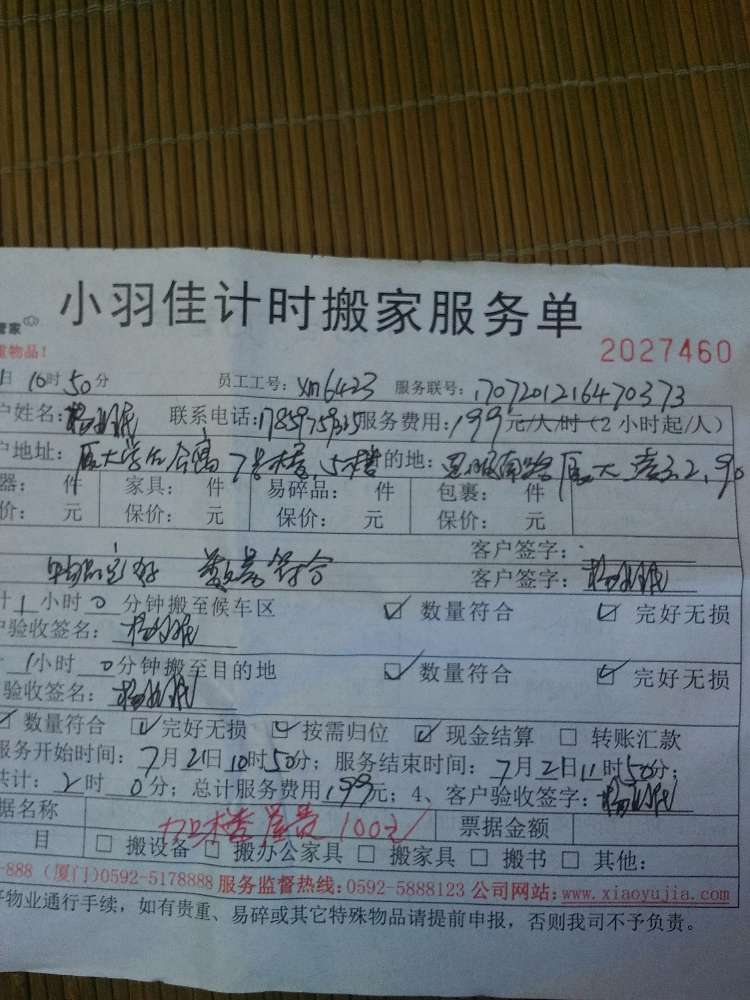 管家
小羽佳计时搬家服务单
重物品!
2027460
日 10时50分 员工工号: xm6423 服务联号: 1707201216470373
户姓名: 联系电话: 服务费用: 199元/人/时(2小时起/人)
户地址: 厦大学生公寓7号楼, 5楼 的地: 思明南路 厦大
器: 件 家具: 件 易碎品: 件 包裹: 件
价: 元 保价: 元 保价: 元 保价: 元
客户签字:
物品完好 数量符合 客户签字:
计1小时0分钟搬至候车区 ☑ 数量符合 ☑ 完好无损
户验收签名:
1小时0分钟搬至目的地 ☑ 数量符合 ☑ 完好无损
验收签名:
☑ 数量符合 ☑ 完好无损 ☑ 按需归位 ☑ 现金结算 □ 转账汇款
服务开始时间: 7月21日10时50分; 服务结束时间: 7月21日11时50分;
共计: 2时0分; 总计服务费用199元; 4、客户验收签字:
据名称 加楼层费100元 票据金额
目 □ 搬设备 □ 搬办公家具 □ 搬家具 □ 搬书 □ 其他:
-888 (厦门)0592-5178888 服务监督热线: 0592-5888123 公司网站: www.xiaoyujia.com
物业通行手续, 如有贵重、易碎或其它特殊物品请提前申报, 否则我司不予负责。